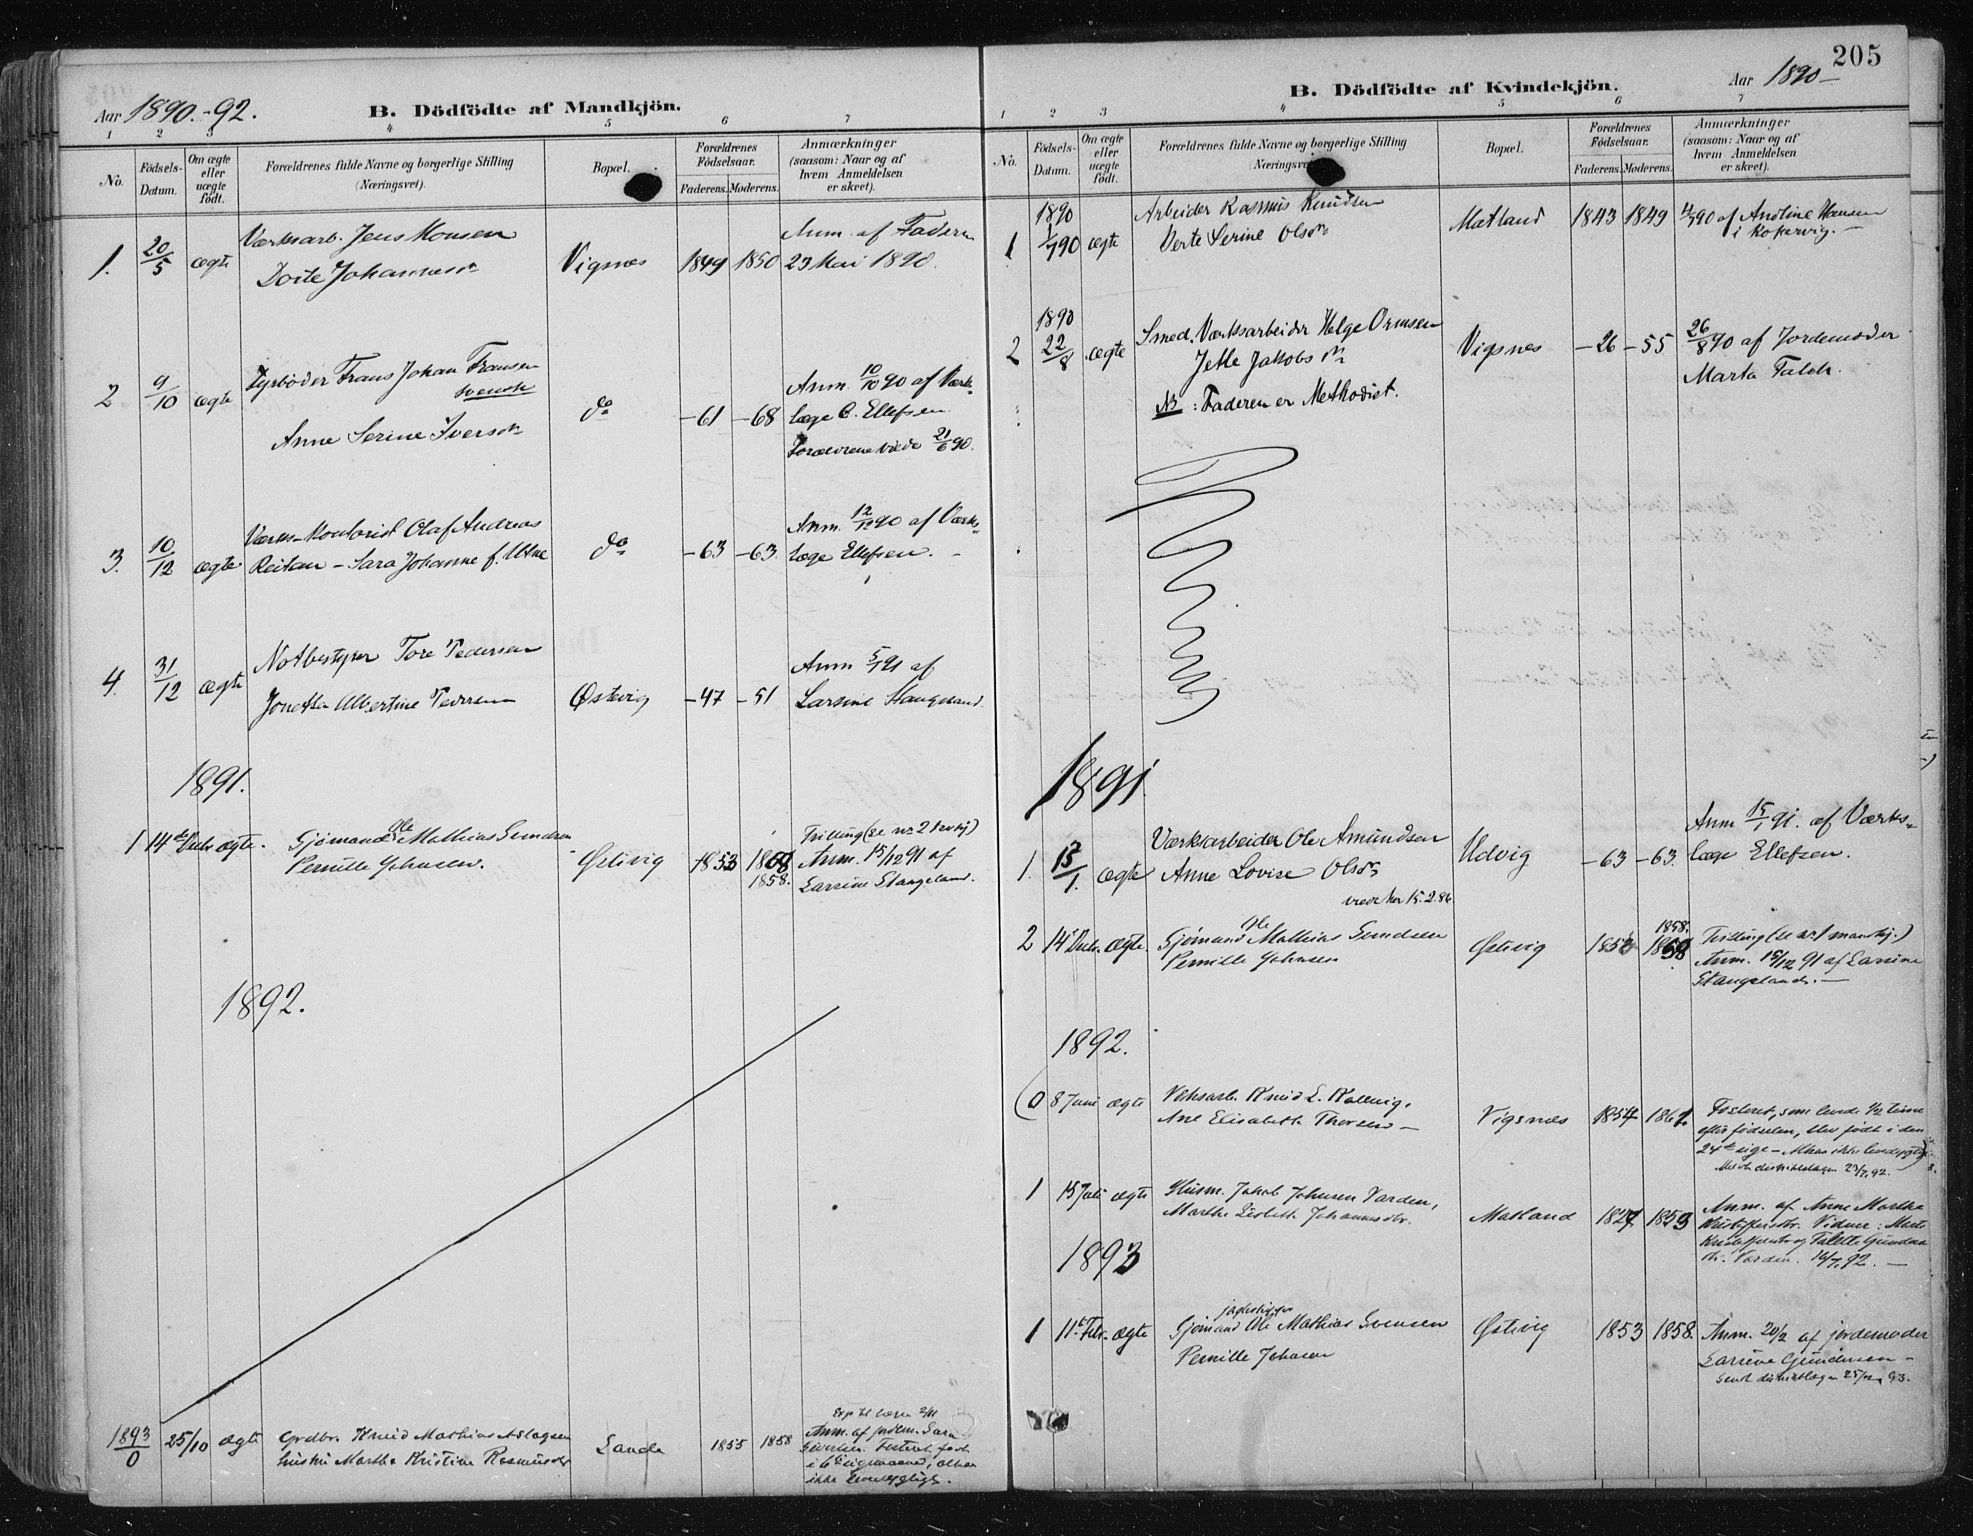 Aar 1890.-92.
B. Dödfödte af Mandkjön.
1 2 3 4 5 6 7
No.
Födsels-Datum.
Om ægte eller uægte födt.
Forældrenes fulde Navne og borgerlige Stilling (Næringsvei).
Bopæl.
Forældrenes Födselsaar.
Faderens. Moderens.
Anmærkninger (saasom: Naar og af hvem Anmeldelsen er skeet).
1. 20/5 ægte Værksarb. Jens Monsen
Dorte Johannesdr. Vigsnes 1849 1850 Anm. af Faderen
23 Mai 1890.
2 9/10 ægte Fyrböder Frans Johan Fransen
svensk
Anne Serine Iversdr. do -61 -68 Anm. 10/10 90 af Værks-
læge C. Ellefsen
Forældrene viede 21/6 90.
3. 10/12 ægte Værks-Kontorist Olaf Andreas
Reitan - Sara Johanne f. Utne do -63 -63. Anm. 12/12 90 af Værks-
læge Ellefsen. -
4. 31/12 ægte Notbestyrer Tore Pedersen
Jonetta Albertine Pedersen Østvig -47 -51 Anm 5/1 91 af
Larsine Stangeland.
1891.
1 14de Decbr ægte. Sjömand Ole Mathias Svendsen
Pernille Johnsen. Østvig 1853 1858. Tvilling (se nr 2 kvkj)
Anm. 15/12 91 af
Larsine Stangeland.
1892.
1893
0 25/10 ægte Grdbr. Knud Mathias Aslagsen
hustru Marthe Kristine Rasmusdr Sande 1855 1858 Anm. af jordm. Sara
Fosteret født
i 6te
ikke levedygtigt.
205
Aar 1890-
B. Dödfödte af Kvindekjön.
1 2 3 4 5 6 7
No.
Födsels-Datum.
Om ægte eller uægte födt.
Forældrenes fulde Navne og borgerlige Stilling (Næringsvei).
Bopæl.
Forældrenes Födselsaar.
Faderens. Moderens.
Anmærkninger (saasom: Naar og af hvem Anmeldelsen er skeet).
1890
1 1/7 90 ægte Arbeider Rasmus Knudsen
Berte Serine Olsdr. Matland 1843 1849 4/7 90 af Andrine Hansen
i Kopervig. -
1890
2 22/8 ægte Smed. Værksarbeider Helge Ormsen
Jette Jakobsdr.
NB : Faderen er Methodist. Vigsnes -26 -55 26/8 90 af Jordemoder
Marta Falch.
1891
1. 13/1. ægte Værksarbeider Ole Amundsen
Anne Lovise Olsdr.
viede her 15.2.86 Udvig -63 -63. Anm 15/1 91. af Værks-
læge Ellefsen.
2 14de Decbr. ægte. Sjömand Ole Mathias Svendsen
Pernille Johnsen Østvig 1853 1858. Tvilling (se nr 1 mandkj.)
Anm. 15/12 91 af Larsine
Stangeland. -
1892.
(0 8 Juni ægte Vrksarb. Knud L. Kallevig,
Ane Elisabeth Thorsen - Vigsnes 1854 1861. Fosteret, som levede 1/2 time
efter fødselen, blev født i den
24de uge - Altsaa ikke levedygtig)
23/7. 92.
1 15 Juli ægte Husm. Jakob Johnsen Varden,
Marthe Lisbeth Johannesdr. Matland 1827 1853 Anm. af Anne Marthe
Kristoffersdr. Vidner: Marte
Kristoffersdr og Talette Gundersdr.
Varden. 16/7. 92. -
1893
1 11te Febr. ægte Sjömand Ole Mathias Svensen
Pernille Johnsen Østvig 1853 1858. Anm. 20/2 af jordemoder
Larsine Gundersen -
Sendt distriktslægen 25/2 93.